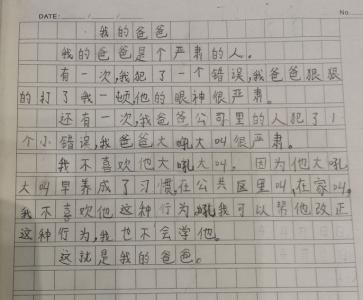 DATE: / /
No.
我的爸爸
我的爸爸是个严肃的人。
有一次,我犯了一个错误,我爸爸狠狠
的打了我一顿,他的眼神很严肃。
还有一次,我爸爸公司里的人犯了1
个小错误,我爸爸大吼大叫很严肃。
我不喜欢他大吼大叫。因为他大吼
大叫早养成了习惯,在公共区里叫,在家叫。
我不喜欢他这种行为,吼我可以帮他改正
这种行为,我也不会学他。
这就是我的爸爸。